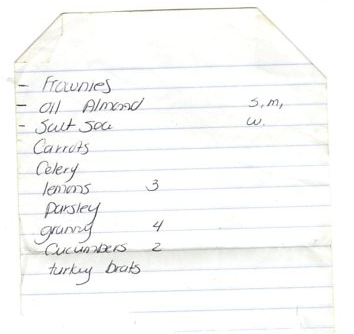 - Frownies
- Oil Almond s.m,
- Salt Sea w.
Carrots
Celery
lemons 3
Parsley
granny 4
Cucumbers 2
turkey brats